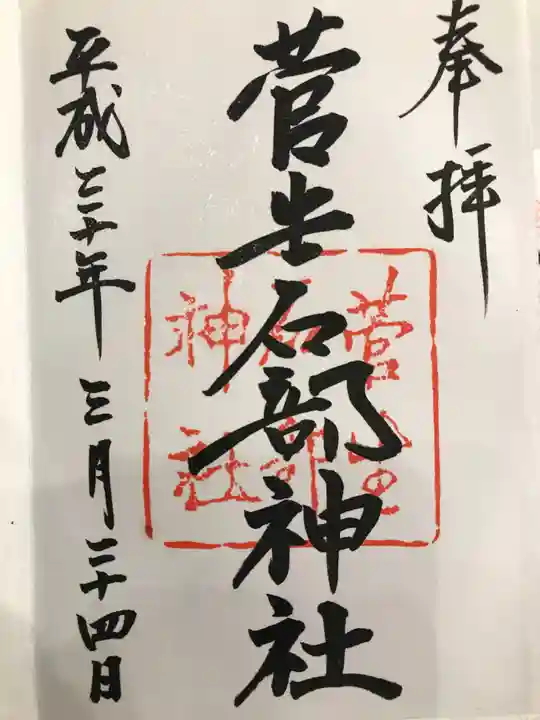 奉拝
菅生石部神社
平成三十年三月二十四日
菅生
石部
神社